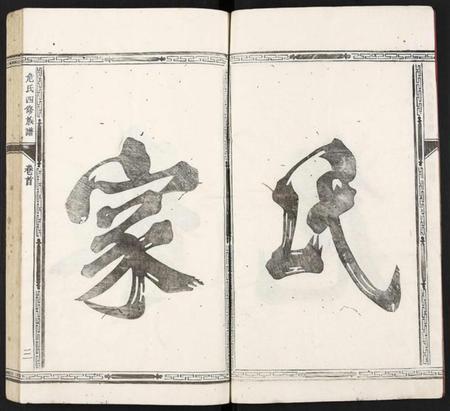 民
家
危氏四修族譜
卷首
三